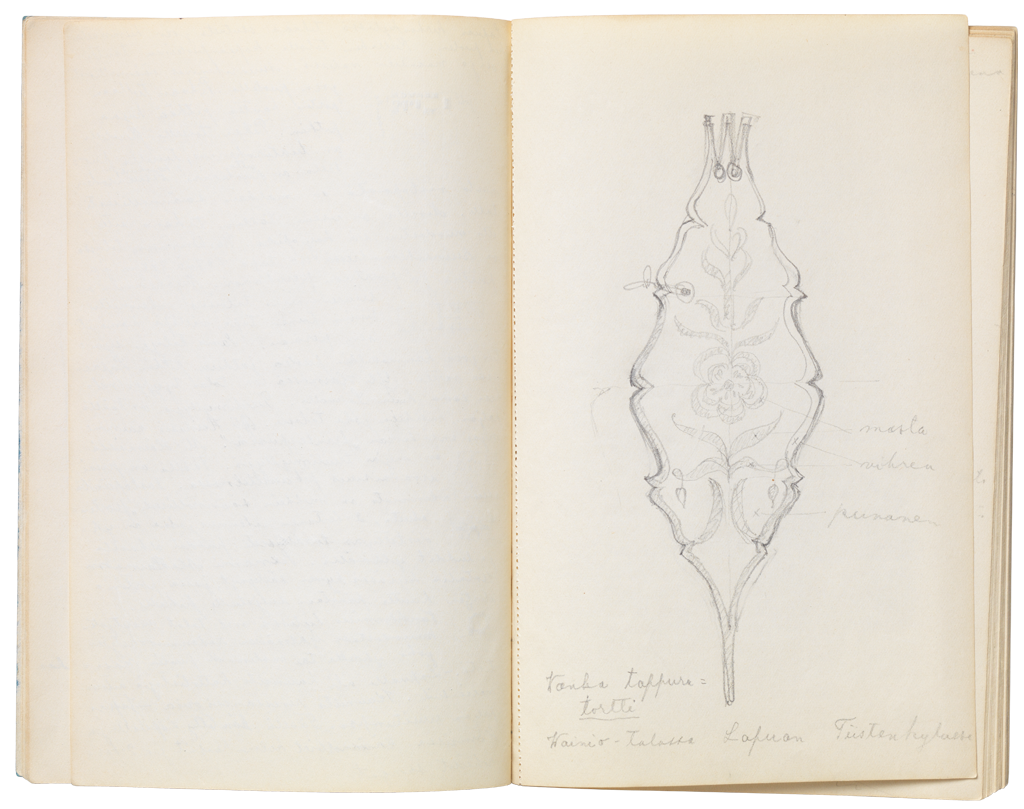 musta
vihreä
punanen
Wanha tappura=
tortti
Wainio-talossa Lapuan Tiistenkylässä